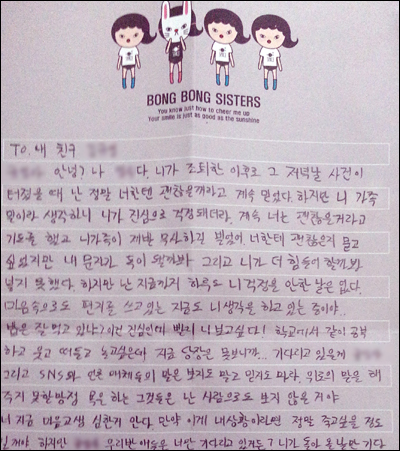 BONG BONG SISTERS
You know just how to cheer me up
Your smile is just as good as the sunshine
TO. 내 친구
안녕? 나 다. 니가 조퇴한 이후로 그 저녁날 사건이
터졌을 때 난 정말 너한텐 괜찮을꺼라고 계속 믿었다. 하지만 니 가족
일이라 생각하니 니가 진심으로 걱정돼더라. 계속 너는 괜찮을거라고
기도를 했고 니가족이 제발 무사하길 빌었어. 너한테 괜찮은지 묻고
싶었지만 내 문자가 독이 될까봐 그리고 니가 더 힘들어 할까봐
넣지 못했다. 하지만 난 지금까지 하루도 니 걱정을 안한 날은 없다.
마음속으로도 편지를 쓰고있는 지금도 니 생각을 하고 있는 중이야..
밥은 잘먹고 있냐? 이건 진심인데 빨리 니 보고싶다! 학교에서 같이 공부
하고 웃고 떠들고 놀고싶은데 지금 당장은 못보니까... 기다리고 있을게
그리고 SNS와 언론 매체들의 말은 보지도 말고 믿지도 마라. 위로의 말을 해
주지 못한망정 욕을 하는 그것들은 난 사람으로도 보지 않을 거야
너 지금 마음고생 심한거 안다. 만약 이게 내상황이라면 정말 죽고싶을 정도
일꺼야 하지만 우리반 애들은 너만 기다리고 있거든? 니가 돌아 올 날만 기다